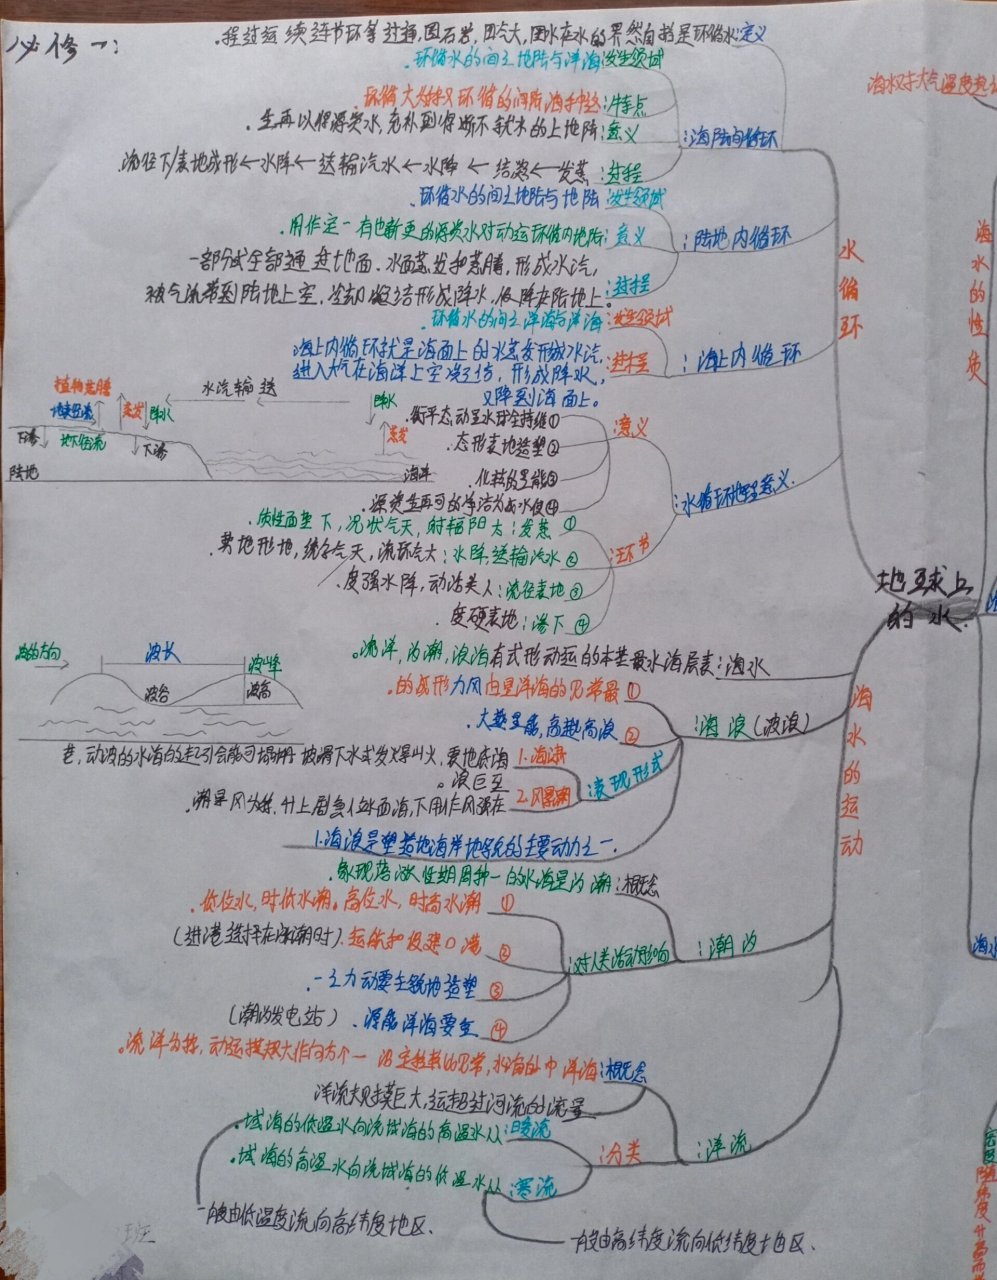 必修一：
地球上的水
水循环
定义：水循环是指自然界的水在水圈、大气圈、岩石圈
海陆间循环：
发生领域：海洋与陆地之间的水循环。
特点：
意义：陆地上的水不断得到补充，水资源得以再生。
过程：蒸发→凝结→降水→水汽输送→降水→形成地表/下径流
陆地内循环：
发生领域：陆地与陆地之间的水循环。
意义：陆地内循环运动对水资源的更新也有一定作用。
过程：
一部分或全部通过地面、水面蒸发和蒸腾，形成水汽，
被气流带到陆地上空，冷却凝结形成降水，仍降在陆地上。
海上内循环：
发生领域：海洋与海洋之间的水循环。
过程：
海上内循环就是海面上的水蒸发形成水汽，
进入大气在海洋上空凝结，形成降水，
又降到海面上。
水循环地理意义：
意义：
①维持全球水动态平衡。
②塑造地表形态。
③能量的转化。
④使水成为洁净的可再生资源。
环节：
①蒸发：太阳辐射，天气状况，下垫面性质。
②水汽输送，降水：大气环流，天气系统，地形地势。
③地表径流：人类活动，降水强度。
④下渗：地表硬度。
植物蒸腾
地表径流
蒸发
降水
水汽输送
降水
蒸发
下渗
地下径流
下渗
陆地
海洋
海水的运动
海水：表层海水最基本的运动形式有海浪，潮汐，洋流。
海浪（波浪）：
①最常见的海洋是由风力形成的。
②浪高越高，能量越大。
表现形式：
1.海啸
海底地震，火山爆发或水下滑坡
2.风暴潮
在强风作用下，海面
巨浪。
1.海浪是塑造海岸地貌的主要动力之一。
波长
波峰
波谷
波高
潮汐：
概念：潮汐是海水的一种周期性涨落现象。
对人类活动影响：
①潮水高时，水位高。潮水低时，水位低。
②港口建设和航运。（进港选择在涨潮时）
③塑造地貌主要动力之一
④重要海洋能源。（潮汐发电站）
洋流：
概念：海洋中的海水，常年比较稳定沿一个方向作大规模运动，称为洋流。
洋流规模巨大，远超过河流的流量
分类：
暖流：从水温高的海域流向水温低的海域。
一般由低纬度流向高纬度地区。
寒流：从水温低的海域流向水温高的海域。
一般由高纬度流向低纬度地区。
海水的性质